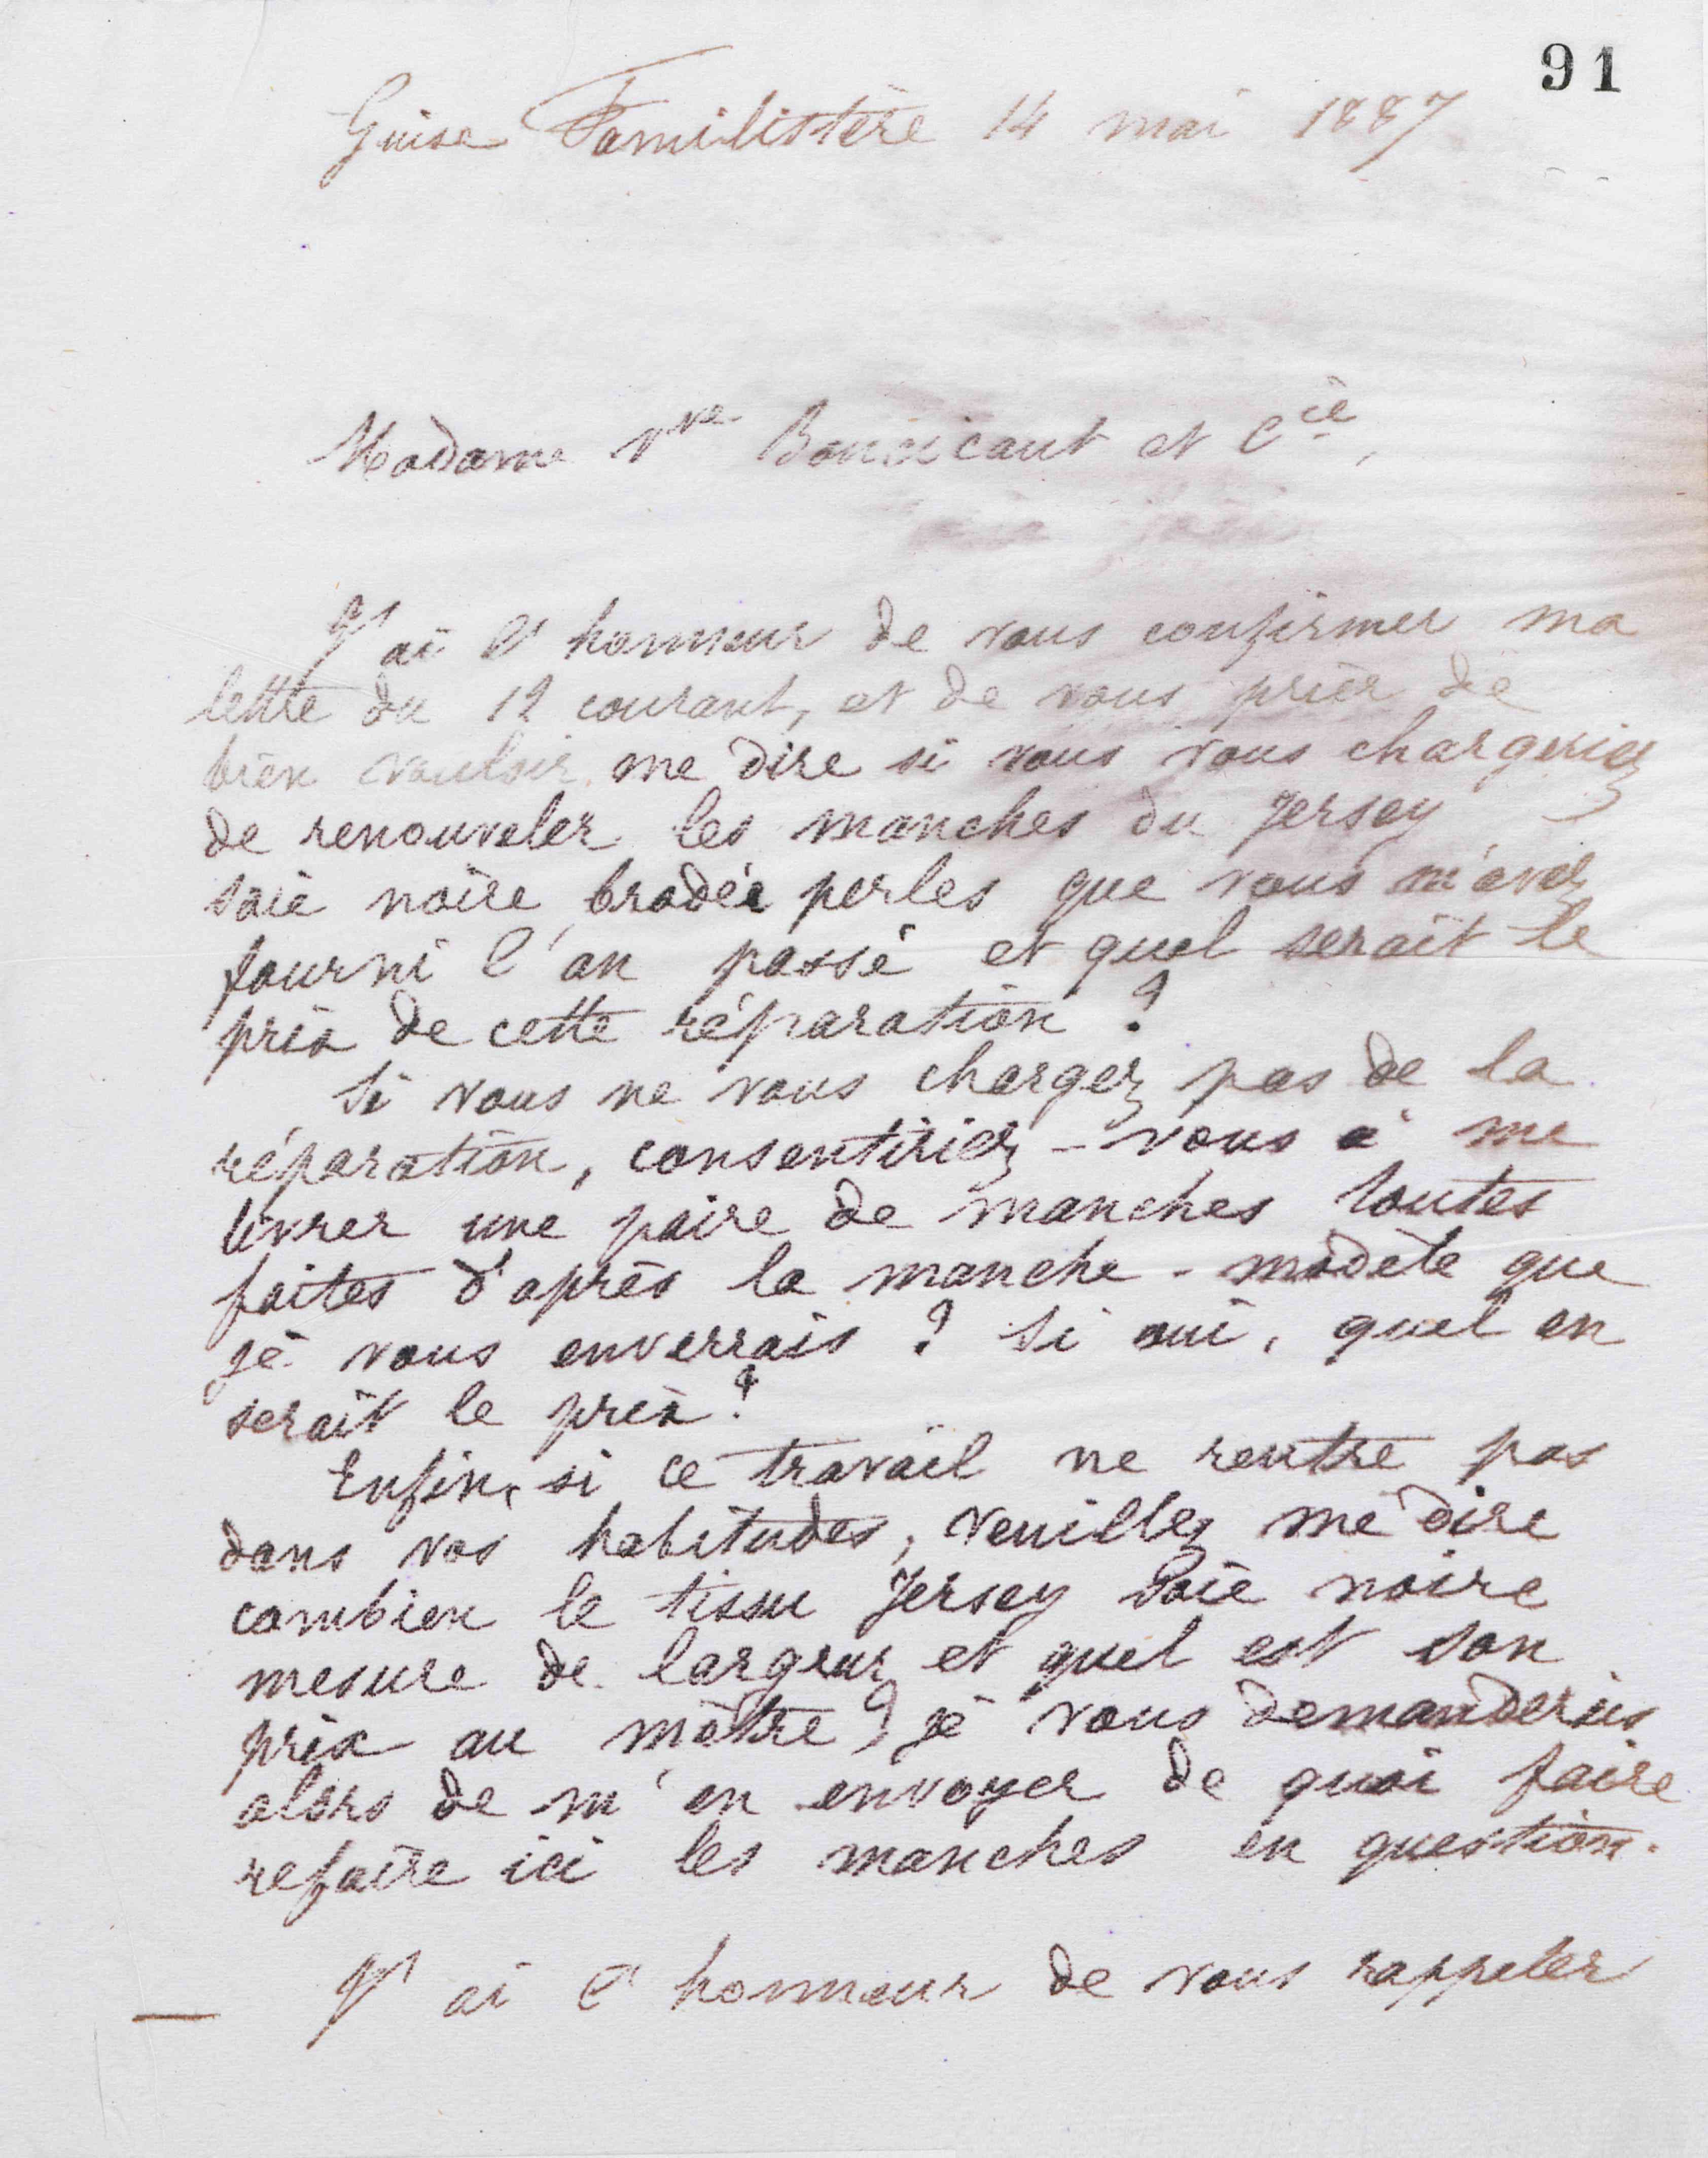 91
Guise Familistère 14 mai 1887
Madame Vve Boucicaut et Cie,
J'ai l'honneur de vous confirmer ma
lettre du 12 courant, et de vous prier de
bien vouloir me dire si vous vous chargeriez
de renouveler les manches du Jersey
soie noire brodée perles que vous m'avez
fourni l'an passé et quel serait le
prix de cette réparation ?
Si vous ne vous chargez pas de la
réparation, consentiriez-vous à me
livrer une paire de manches toutes
faites d'après la manche-modèle que
je vous enverrais ? Si oui, quel en
serait le prix ?
Enfin, si ce travail ne rentre pas
dans vos habitudes, veuillez me dire
combien le tissu Jersey soie noire
mesure de largeur et quel est son
prix au mètre ? je vous demanderais
alors de m'en envoyer de quoi faire
refaire ici les manches en question.
J'ai l'honneur de vous rappeler